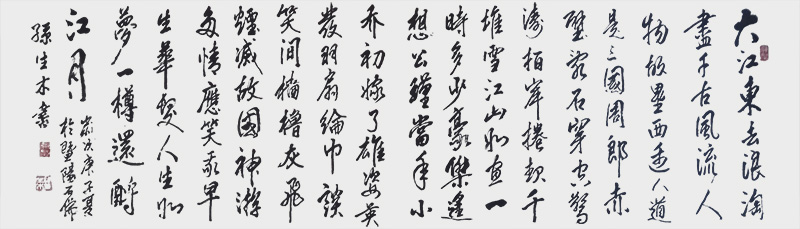 大江東去浪淘
盡千古風流人
物故壘西邊人道
是三國周郎赤
壁亂石穿空驚
濤拍岸捲起千
堆雪江山如畫一
時多少豪傑遙
想公瑾當年小
喬初嫁了雄姿英
發羽扇綸巾談
笑間檣櫓灰飛
煙滅故國神遊
多情應笑我早
生華髮人生如
夢一樽還酹
江月
歲次庚子夏
於暨陽石佛
孫生木書